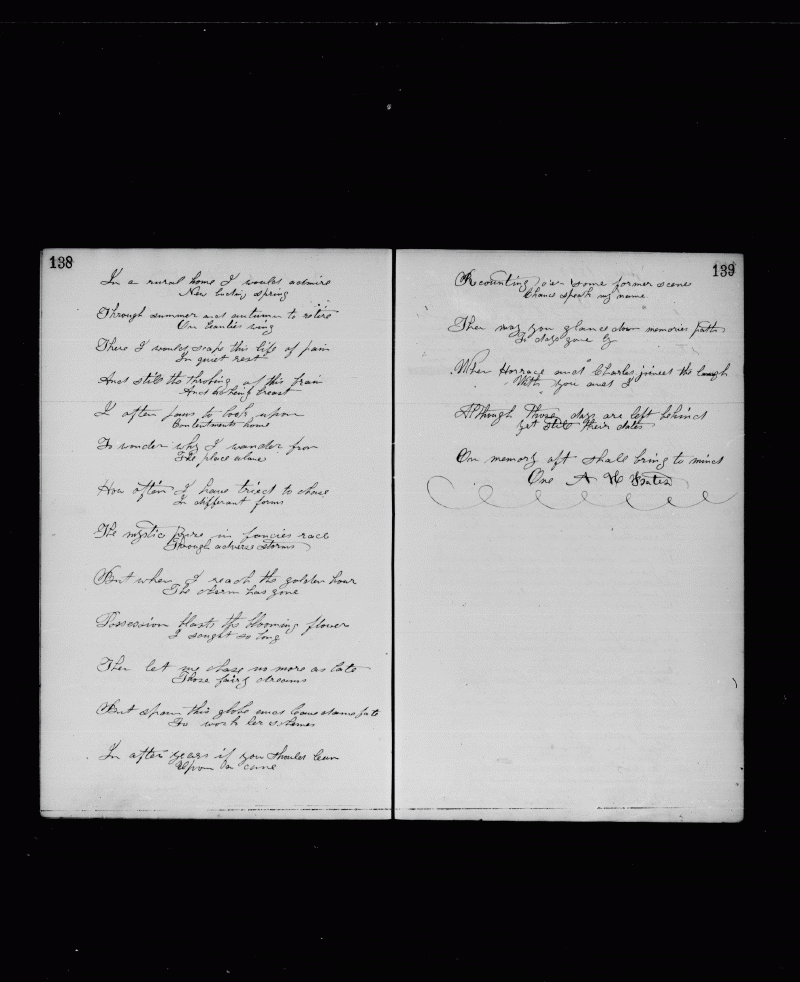 138
In a rural home I would admire
New budding spring
Through summer and autumn to retire
On beauties wing
There I would scape this life of pain
In quiet rest
And still the throbing of this brain
And beating breast
I often paws to look upon
Contentments home
To wonder why I wander from
The place alone
How often I have tried to chase
In different forms
The mystic in fancies race
Through adverse storms
But when I reach the golden hour
The charm has gone
Possession blasts the blooming flower
I sought so long
Then let me chase no more as late
Those fairy dreams
But spurn this globe and leave fate
To work her schemes
In after years if you should lean
Upon a cane
139
Recounting o'er some former scene
Chance speak my name
Then may you glance down memories path
To days gone by
When Horrace and Charles joined the laugh
With you and I
Although Those days are left behind
yet still their dates
On memory oft shall bring to mind
One A H